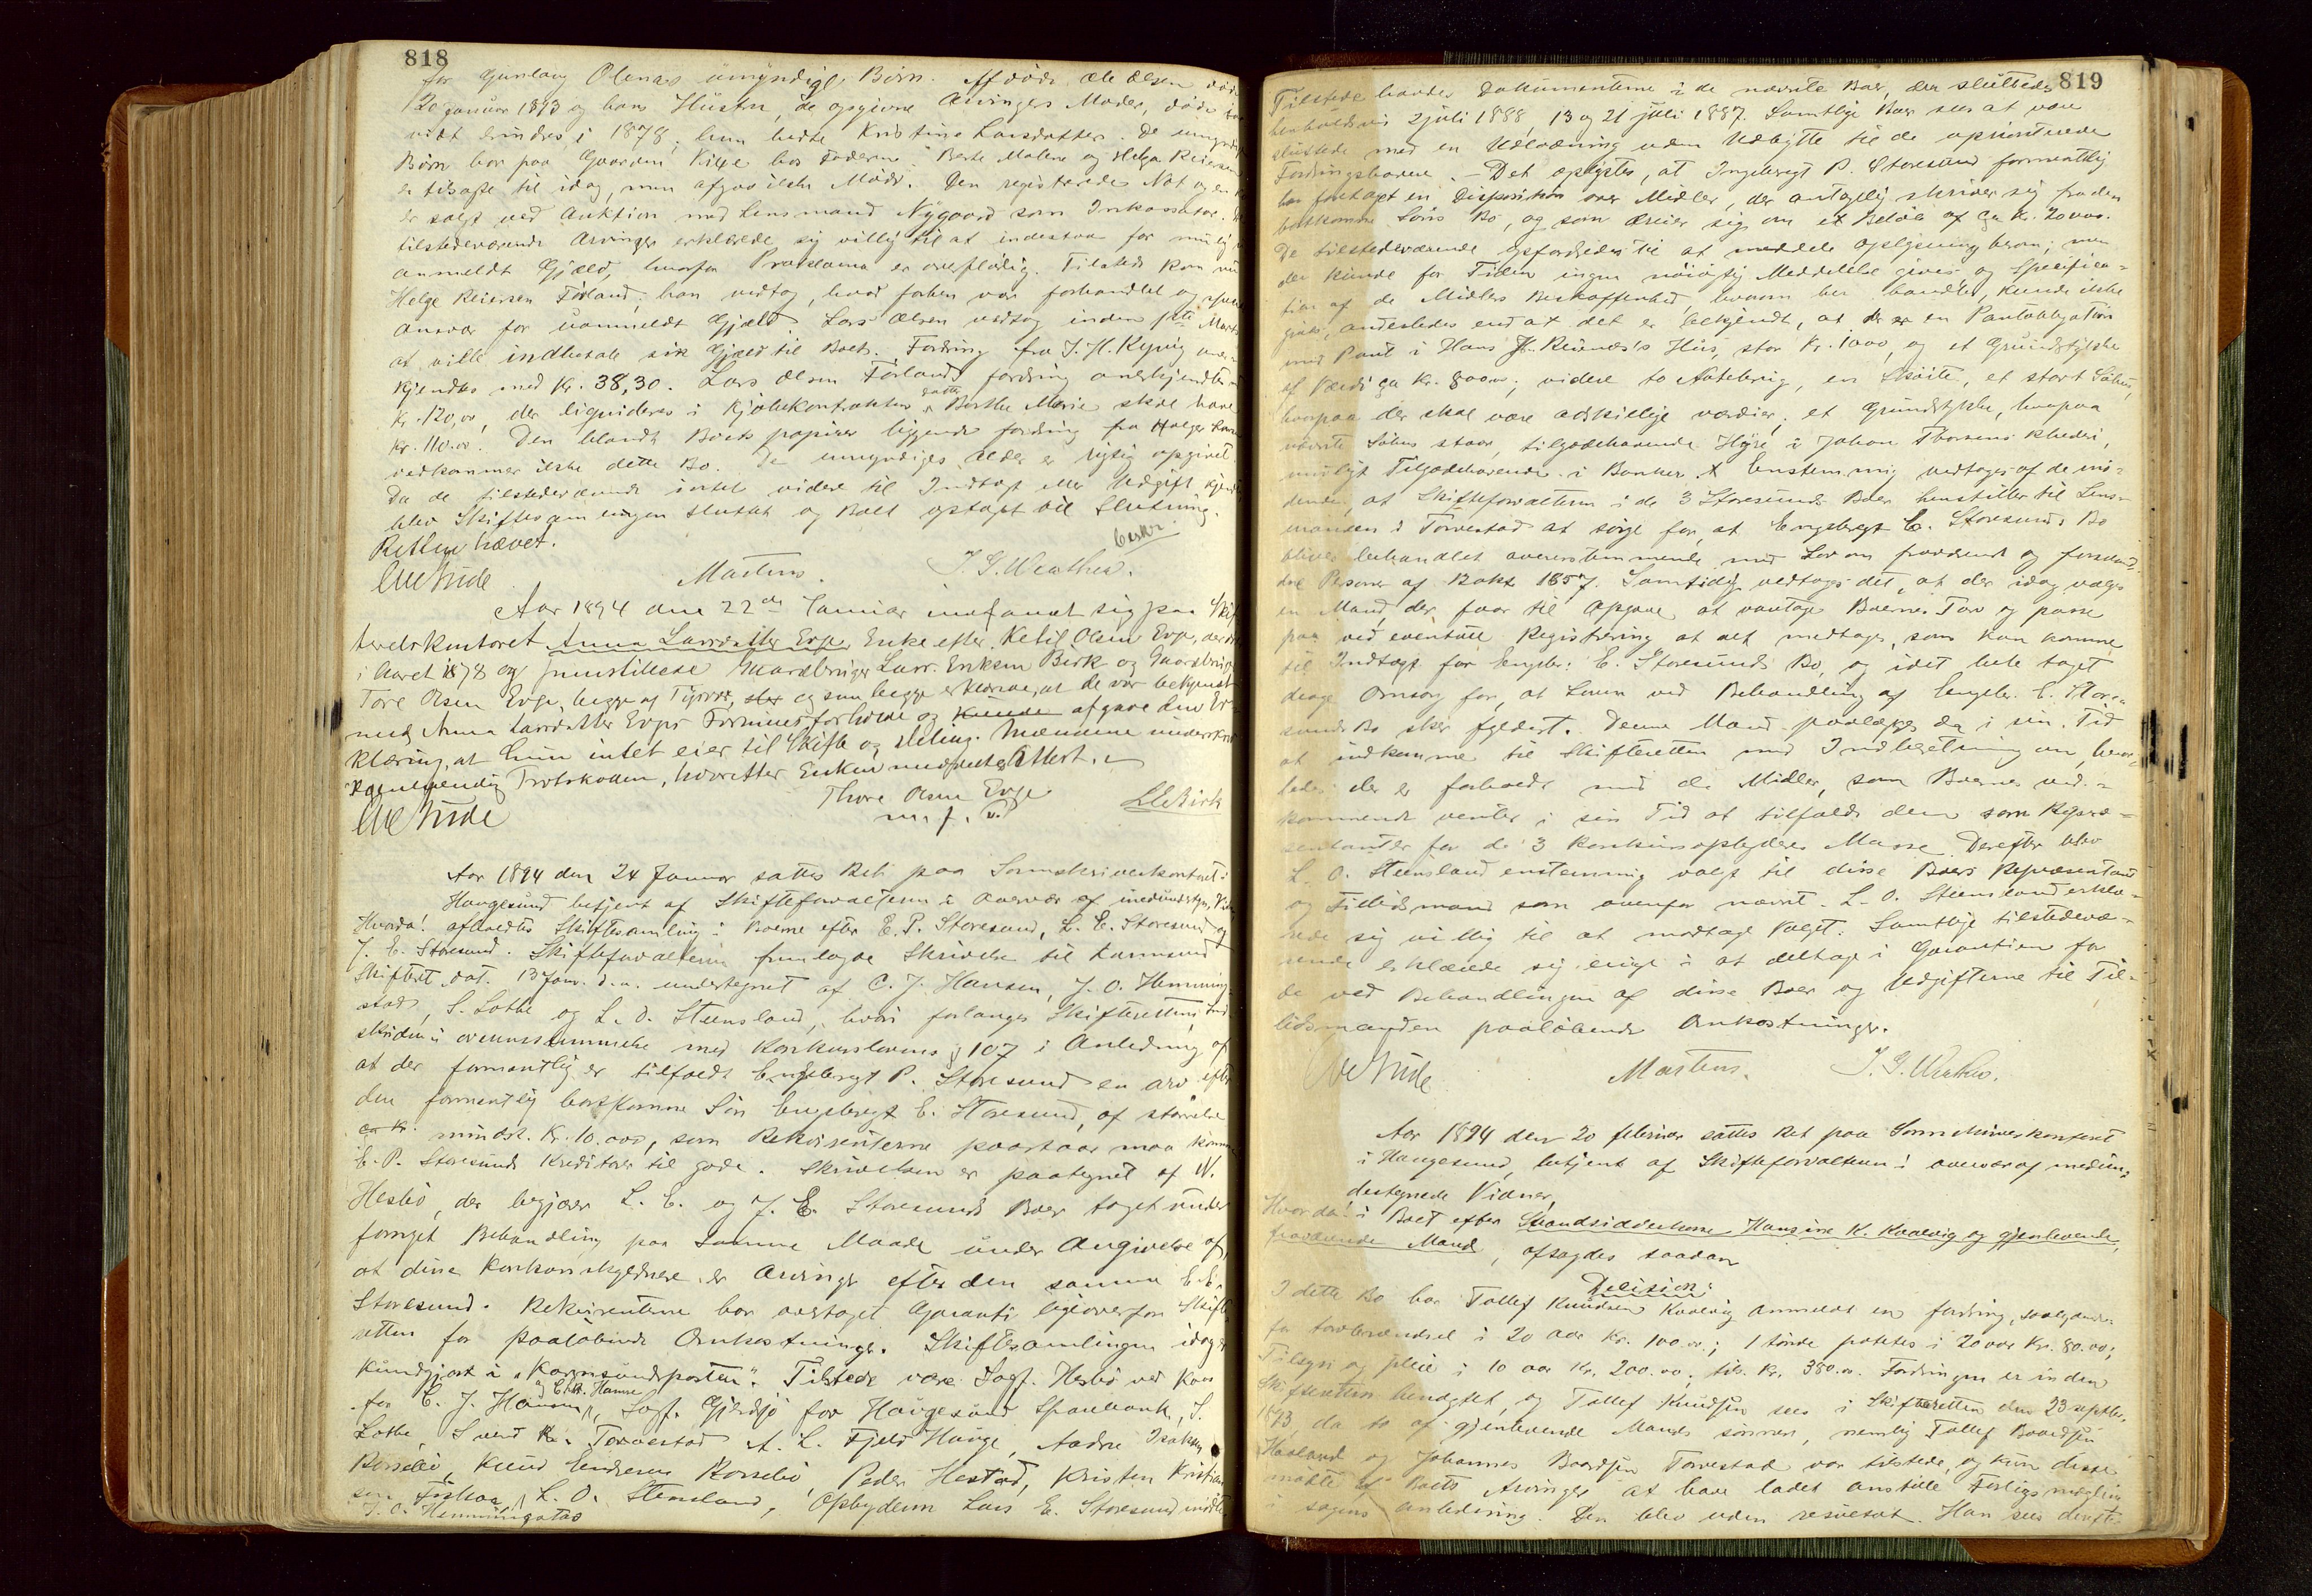 818
for Gunlaug Olenas umyndige Børn. Afdøde Ole Olsen døde
20 januar 1893 og hans Hustru, de opgivne Arvingers Moder, døde
vidt erindres i 1878; hun hedte Kristine Larsdatter. De umyndige
Børn bor paa Gaarden hos Faderen. Berte Malene og Helga Reiersen
er tilsagte til idag, men afgav ikke Møde. Den registrerede Not og en
er solgt ved Auktion med Lensmand Nygaard som Inkassator.
tilstedeværende Arvinger erklærede sig villig til at indestaa for mulig
anmeldt Gjæld, hvorfor Proklama er overflødig. Tilstede kom nu
Helge Reiersen Førland; han vedtog, hvad forhen var forhandlet og
Ansvar for uanmeldt Gjæld. Lars Olsen vedtog inden 1ste Marts
at ville indbetale sin Gjæld til Boet. Fordring fra J. H. Kyvig
kjendtes med Kr. 38,30. Lars Olsen Førlands fordring anerkjendtes
Kr. 120,00, der liquideres i Kjøbekontrakten. Datter Berthe Marie skal have
Kr. 110.00. Den blandt Boets papirer liggende fordring fra Holger
vedkommer ikke dette Bo. De umyndiges Alder er rigtig opgivet.
Da de tilstedeværende intet videre til Indtægt eller Udgift
blev Skiftesamlingen sluttet og Boet optaget til Slutning.
Retten hævet.
Martens. J. G. Wenthes.
Aar 1894 den 22de Januar indfandt sig paa Skif
teretskontoret Anna Larsdatter Evje, Enke efter Ketil Olsen Evje, der
i Aaret 1878 og fremstillede Gaardbruger Lars Eriksen Birk og Gaardbruger
Tore Olsen Evje, begge af Tysvær, og som begge erklærede, at de var bekjendt
med Anna Larsdatter Evjes Formuesforholde og afgave den Er
klæring, at hun intet eier til Skifte og Deling. Mændene underskrev
egenhændig Protokollen, hvorefter Enken meddeltes Attest.
Thore Olsen Evje
m. f. P. LEBirk
Aar 1894 den 24 Januar sattes Ret paa Sorenskriverkontoret i
Haugesund betjent af Skifteforvalteren i Overvær af medunderskr. Vidner
Hvorda! afholdtes Skiftesamling i Boerne efter E. P. Storesund, L. E. Storesund og
J. E. Storesund. Skifteforvalteren fremlagde Skrivelse til Karmsund
Skifteret dat. 13 Janr. d.a. undertegnet af C. J. Hansen, J. O. Hemming-
stad, S. Lothe og L. O. Steensland, hvori forlanges Skifterettens Ind-
skriden i overensstemmelse med Konkurslovens § 107 i Anledning af
at der formentlig er tilfaldt Engebregt P. Storesund en arv efter
den formentlig bortkomne Søn Engebregt E. Storesund, af størrelse
mindst. Kr. 10.000, som Rekvirenterne paastaar maa komme
E. P. Storesunds Kreditorer til gode. Skrivelsen er paategnet af N.
Hesbø, der begjærer L. E. og J. E. Storesunds Boer taget under
fornyet Behandling paa samme Maade under Angivelse af
at disse Konkursskyldnere er Arvinger efter den samme E. E.
Storesund. Rekvirenterne har overtaget Garanti ligeoverfor Skifte
retten for paaløbende Omkostninger. Skiftesamlingen idag er
kundgjort i „Karmsundsposten“. Tilstede vare Sagf. Hesbø ved Kon
for C. J. Hansen, Sagf. Gjerdsjø for Haugesund Sparebank, S.
Lothe, Svend Torvestad A. L. Fjeld Hauge, Andre Isaksen
Rossebø, Knud Endresen Rossebø, Peder Hestad, Kristen Kristian
sen L. O. Stensland, Opbyderen Lars E. Storesund
J. O. Hemmingstad
819
Tilstede havdes Dokumenterne i de nævnte Boer, der sluttedes
henholdsvis 2 juli 1888, 13 og 21 juli 1887. Samtlige Boer sees at være
sluttede med en Udlodning uden Udbytte til de uprioriterede
Fordringshavere. – Det oplystes, at Ingebregt P. Storesund formentlig
har foretaget en Disposition over Midler, der antagelig skriver sig fra den
bortkomne Søns Bo, og som dreier sig om et Beløb af ca Kr. 20000.
De tilstedeværende opfordredes til at meddele Oplysning herom; men
der kunde for Tiden ingen nøiagtig Meddelelse gives og Specifica-
tion af de Midlers Beskaffenhed, hvorom her handles, kunde ikke
gives, anderledes end at det er bekjendt, at der er en Pantobligation
med Pant i Hans Reinæs's Hus, stor Kr. 1000, og et Grundstykke
af Værdi ca Kr. 8000; videre to Notebrug, en Skøite, et stort Søhus,
hvorpaa der skal være adskillige værdier; et Grundstykke, hvorpaa
nævnte Søhus staar, tilgodehavende Hyre i Johan Thorsens Rhederi,
muligt Tilgodehavende i Banker. Enstemmig vedtages af de mø-
dende, at Skifteforvalteren i de 3 Storesunds Boer henstiller til Lens-
manden i Torvestad at sørge for, at Engebregt E. Storesunds Bo
bliver behandlet overensstemmende med Lov om fraværende og forsvund-
dne Personer af 12 Okt 1857. Samtidig vedtages det, at der idag vælges
en Mand, der faar til Opgave at varetage Boernes Tarv og passe
paa ved eventuel Registrering at alt medtages, som kan komme
til Indtægt for Engebr. E. Storesunds Bo, og i det hele taget
drage Omsorg for, at Loven ved Behandling af Engebr. E. Store-
sunds Bo sker fyldest. Denne Mand paalægges da i sin Tid
at indkomme til Skifteretten med Indberetning om, hvor-
ledes der er forholdt med de Midler, som Boernes ved-
kommende venter i sin Tid at tilfalde dem som Repræ-
sentanter for de 3 Konkursopbyderes Masse. Derefter blev
L. O. Steensland enstemmig valgt til disse Boers Repræsentant
og Tillidsmand som ovenfor nævnt. L. O. Steensland erklæ-
rede sig villig til at modtage Valget. Samtlige tilstedevæ-
rende erklærede sig enige i at deltage i Garantien for
de ved Behandlingen af disse Boer og Udgifterne til Til-
lidsmanden paaløbende Omkostninger.
Martens. J. G. Wenthes.
Aar 1894 den 20 februar sattes Ret paa Sorenskriverkontoret
i Haugesund, betjent af Skifteforvalteren i overvær af medun-
dertegnede Vidner,
Hvorda! i Boet efter Strandsidderkone Hansine K. Kvalevig og gjenlevende,
fraværende Mand, afsagdes saadan
Decision:
I dette Bo har Tollef Knudsen Kvalevig anmeldt en fordring, saalydende:
for torvbrændsel i 20 aar Kr. 100.00; 1 tønde potetes i 20 aar Kr. 80.00;
Tilsyn og pleie i 10 aar Kr. 200.00, tils. Kr. 380.00. Fordringen er inden
Skifteretten benægtet, og Tollef Knudsen sees i Skifteretten den 23 septbr.
1893, da to af gjenlevende Mands sønner, nemlig Tollef Baardsen
Havland og Johannes Baardsen Torvestad var tilstede, og kun disse
mødte af Boets Arvinger at have ladet anstille Forligsmægling
i sagens anledning. Den blev uden resultat. Han sees derefter